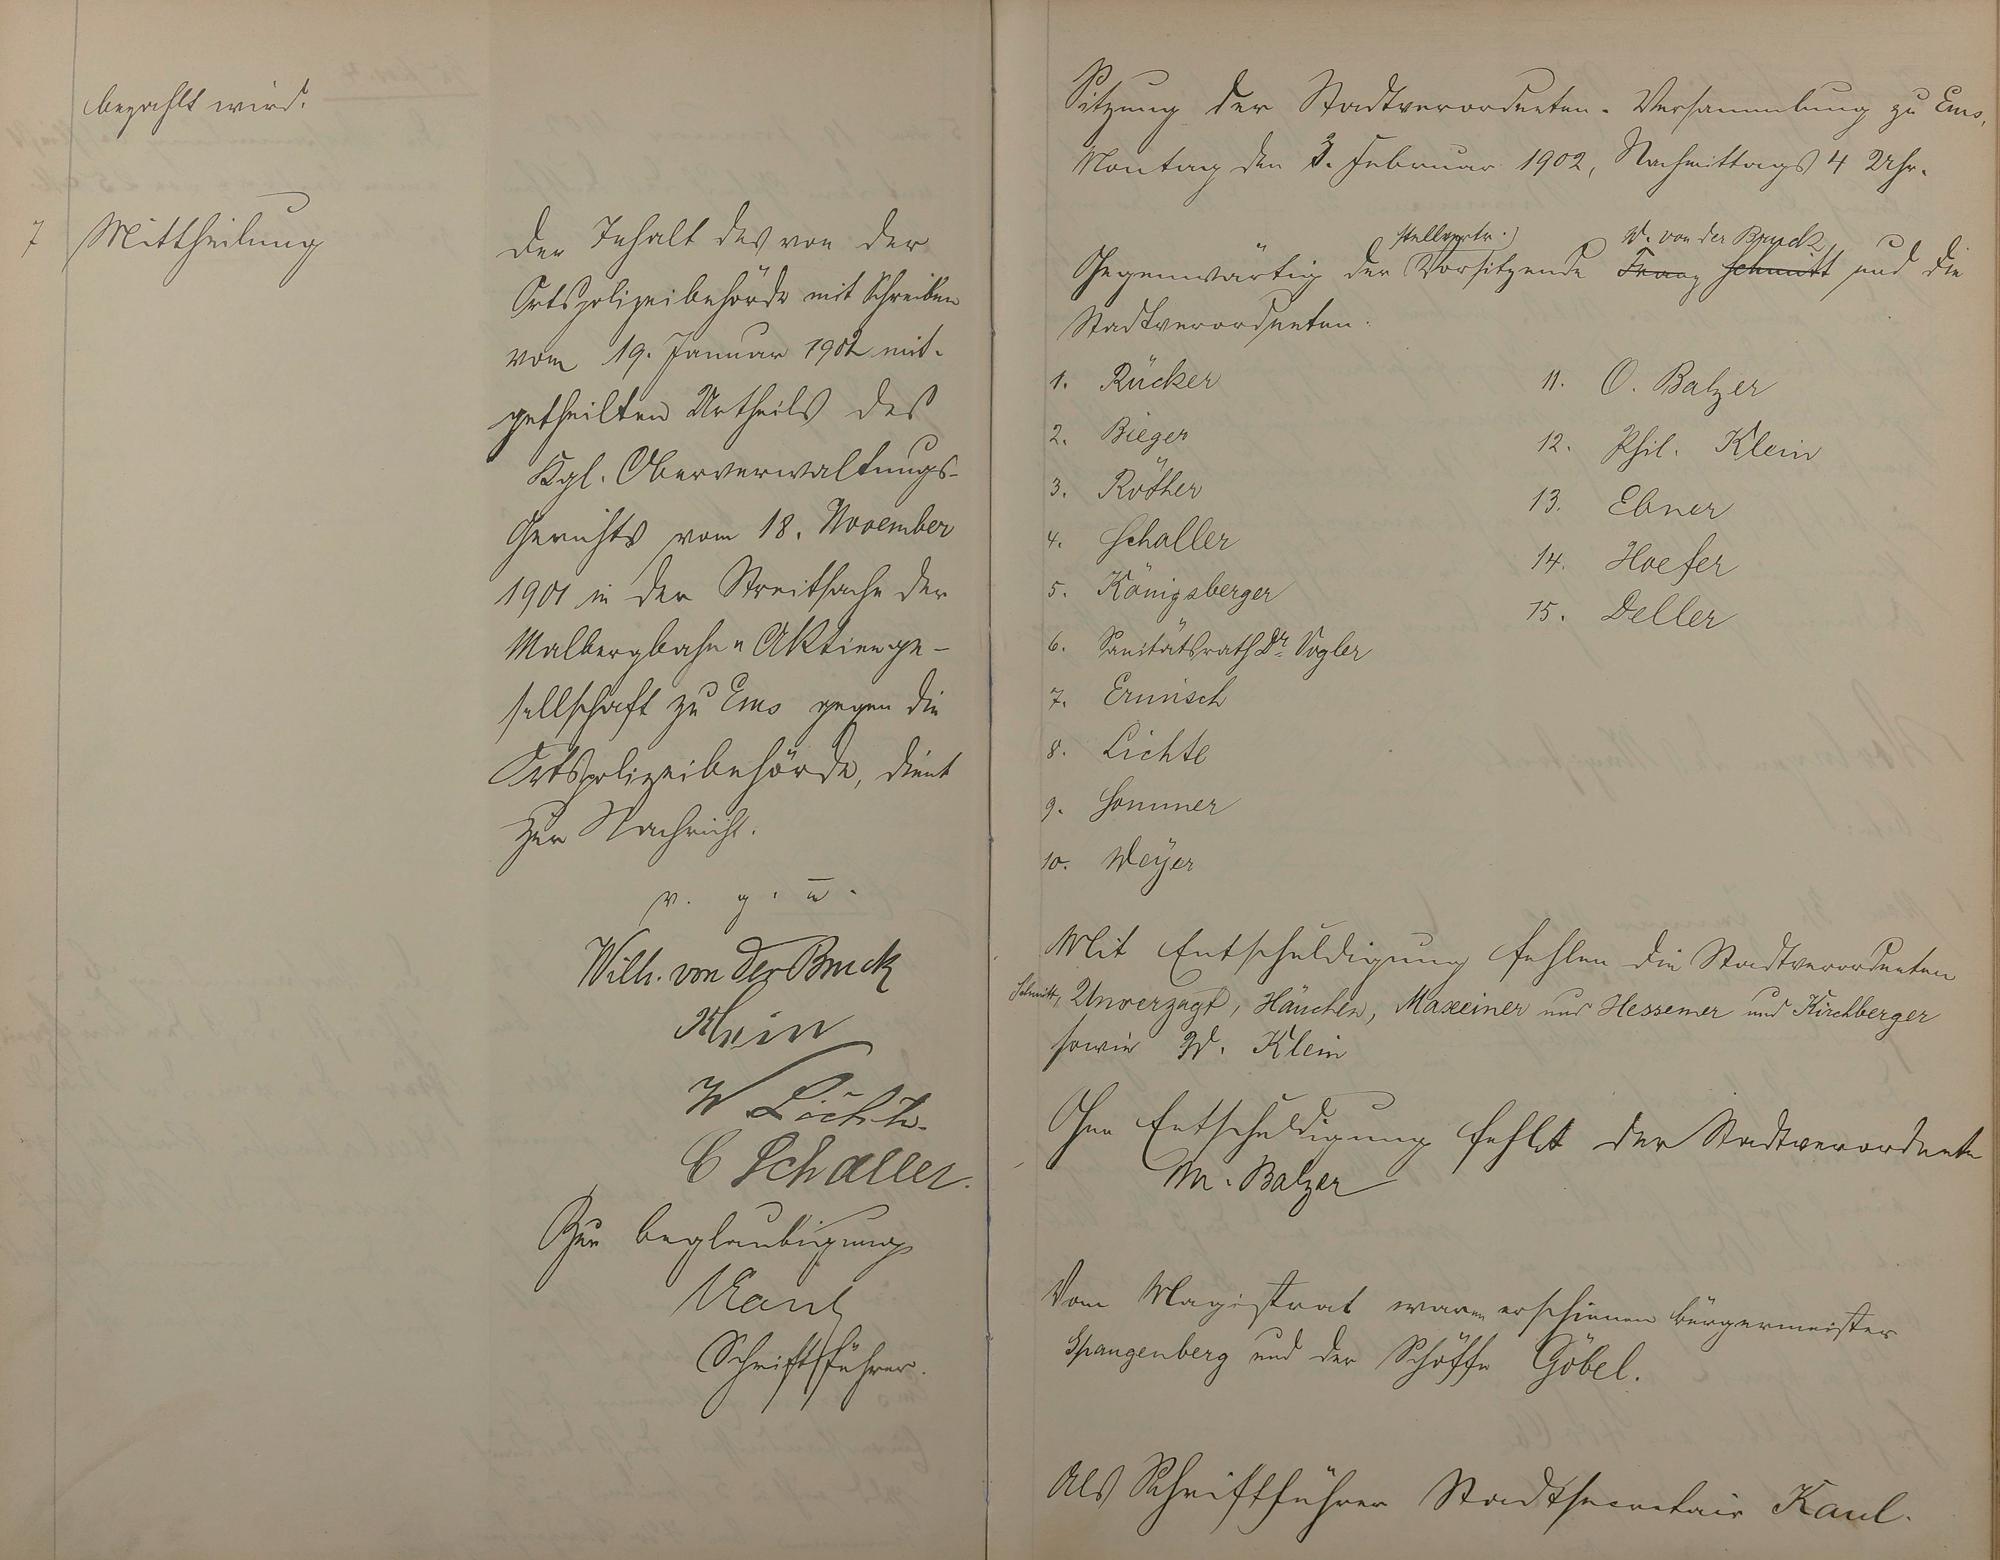 bezahlt wird.
7 Mittheilung
Der Inhalt des von der
Ortspolizeibehörde mit Schreiben
vom 19. Januar 1902 mit-
getheilten Urtheils des
Kgl. Oberverwaltungs-
Gerichts vom 18. November
1901 in der Streitsache der
Malbergbahn-Aktienge-
sellschaft zu Ems gegen die
Ortspolizeibehörde, dient
zur Nachricht.
v. g. u.
Wilh. von der Bruck
Klein
W Lichte.
C Schaller.
Zur Beglaubigung
Kaul
Schriftführer.
Sitzung der Stadtverordneten-Versammlung zu Ems,
Montag den 3. Februar 1902, Nachmittags 4 Uhr.
stellvertr. W. von der Bruck
Gegenwärtig der Vorsitzende Franz Schmitt und die
Stadtverordneten.
1. Rücker
2. Bieger
3. Röther
4. Schaller
5. Königsberger
6. Sanitätsrath Dr. Vogler
7. Ermisch
8. Lichte
9. Sommer
10. Weyer
11. O. Balzer
12. Phil. Klein
13. Ebner
14. Hoefer
15. Deller
Mit Entschuldigung fehlen die Stadtverordneten
Schmitt, Unverzagt, Häuchen, Maxeiner und Hessemer und Kirchberger
sowie W. Klein
Ohne Entschuldigung fehlt der Stadtverordnete
M. Balzer
Vom Magistrat waren erschienen Bürgermeister
Spangenberg und der Schöffe Göbel.
Als Schriftführer Stadtsecretair Kaul.